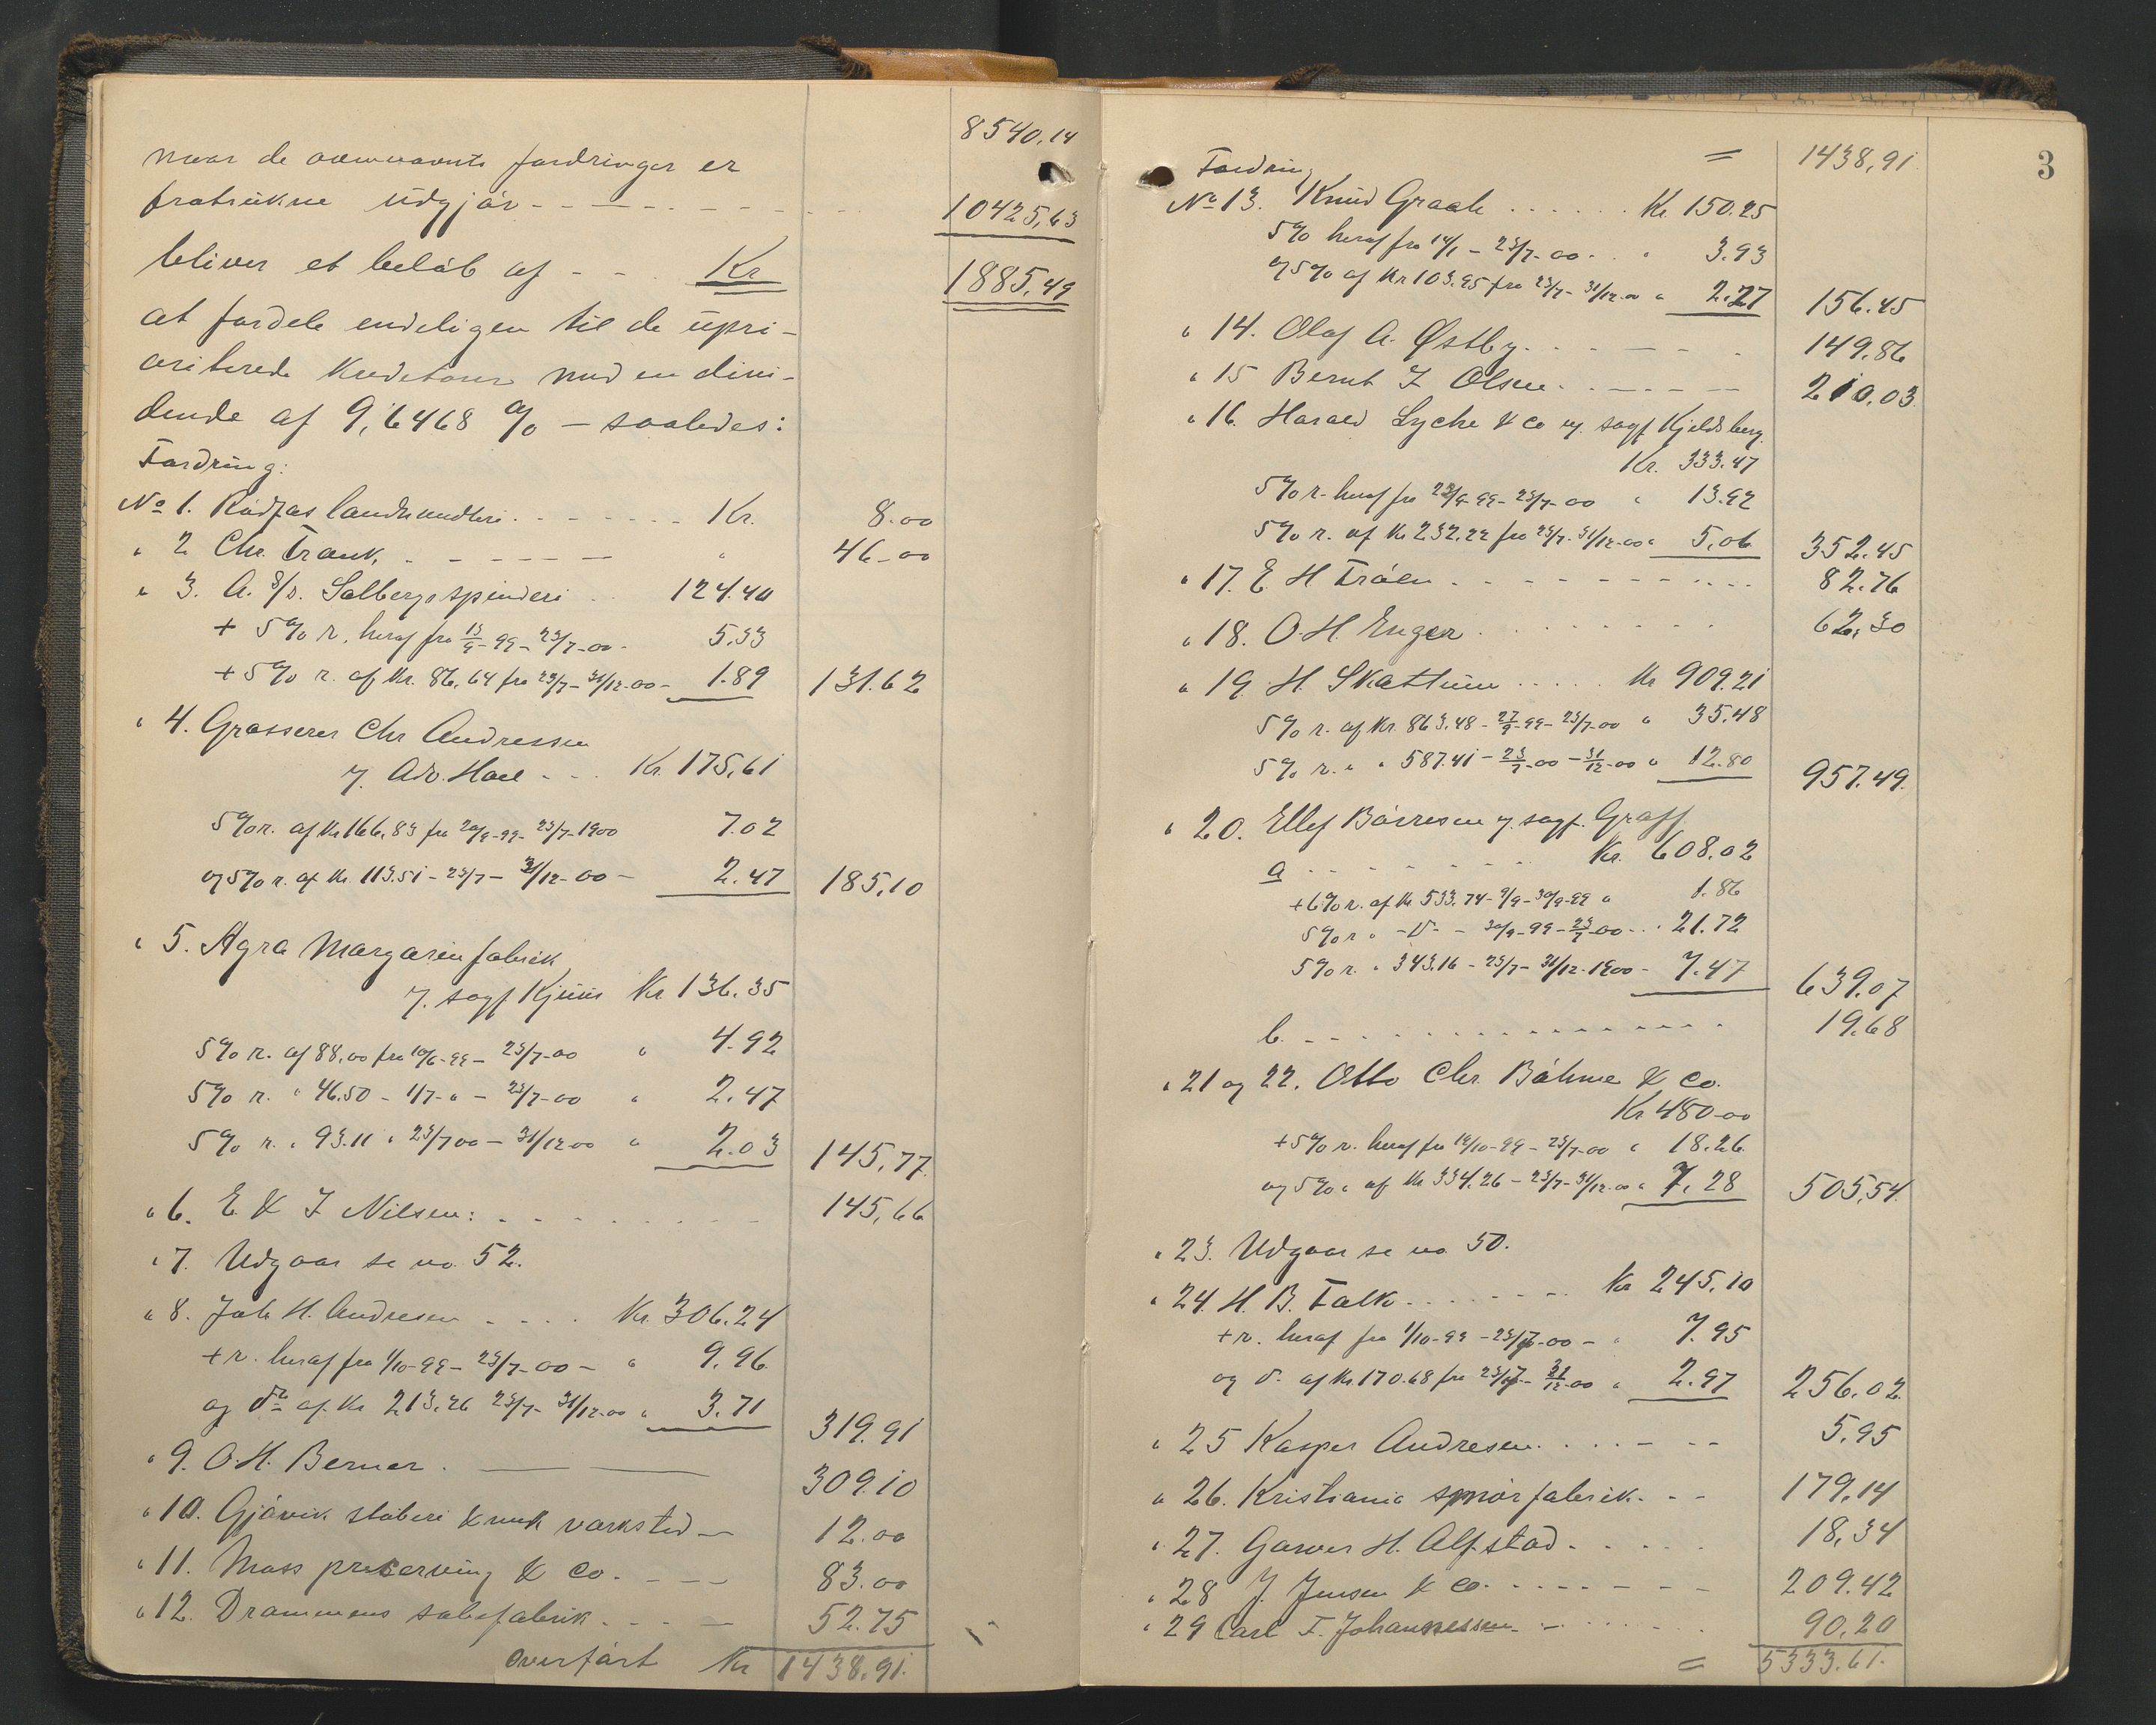 8540.14
naar de ovennævnte fordringer er
fratrukne udgjør - - - 10425,63
bliver et beløb af - - Kr 1885,49
at fordele endeligen til de upri-
oriterede kreditorer med en divi-
dende af 9,6468 % — saaledes:
Fordring:
No 1. Landhandleri - - - Kr. 8.00
" 2 Chr. Frank, - - - " 46-00
" 3. A. S/S. Solbergs spinderi .. 124.40
+ 5% r. heraf fra 13/9-99-23/7-00- 5.33
+ 5% r. af Kr. 86.64 fra 23/7-31/12-00- 1.89 131.62
" 4. Grosserer Chr Andressen
v. Adv. - - - Kr. 175,61
5% r. af Kr 166,83 fra 20/9-99-23/7-1900 7.02
og 5% r. af Kr. 113.51-23/7-31/12-00- 2.47 185,10
" 5. Agra Margarinfabrik
v. sagf Kr 136.35
5% r. af 88,00 fra 10/6-99-23/7-00 " 4.92
5% r. " 46.50 - 1/7-"-23/7-00 " 2.47
5% r. " 93.11 " 23/7 00-31/12 00 " 2.03 145,77
" 6. E & J Nilsen: - - - 145,66
" 7. Udgaar se no 52.
" 8. Joh H. Andresen - - - Kr. 306.24
+ r. heraf fra 1/10-99-23/7-00- " 9.96
og do af Kr 213.26 23/7-31/12-00 " 3.71 319.91
" 9. O. H. Berner. 309.10
" 10. Gjøvik støberi & mek værksted - 12.00
" 11. Moss preserving & Co. - - 83.00
" 12. Drammens - - - 52.75
Overført Kr 1438,91.
3
= 1438,91
Fordring
No 13. Knud Graah . . . . . Kr 150.25
5% heraf fra 14/1-23/7-00 . . " 3.93
og 5% af Kr 103.95 fra 23/7-31/12-00 " 2.27 156.45
" 14. Olaf A. Østby - - - 149,86
" 15 Bernt J Olsen - - - 210.03
" 16. Harald Lyche & Co v. sagf Kjeldsberg.
Kr. 333.47
5% r. heraf fra 23/9-99-23/7-00 " 13.92
5% r. af Kr 232.22 fra 23/7-31/12-00 " 5,06 352.45
" 17. E H Trøen - - - 82.76
" 18. O. H. Enger - - - 62,30
" 19. H. Skattum . . . . . Kr 909.21
5% r. af Kr. 863.48-27/9-99-23/7-00 " 35.48
5% r. " " 587.41-23/7-00-31/12-00 " 12.80 957.49.
" 20. Ellef Børresen v. sagf. Graff
a - - - Kr. 608.02
+ 6% r. af Kr 533.74-9/9-30/9-99 " 1.86
5% r " -D- - 30/9-99-23/7-00-.. 21.72
5% r. " 343.16-23/7-31/12-1900- 7.47 639.07
b. - - - 19.68
" 21 og 22. Otto Chr. Bøhme & Co.
Kr 480.00
+ 5% r. heraf fra 19/10-99-23/7-00 " 18.26
og 5% " af Kr 334.26-23/7-31/12-00 " 7.28 505,54.
" 23. Udgaar se no 50.
" 24. H. B. Falk - - - Kr 245,10
+ r. heraf fra 1/10-99-23/7-00- " 7.95
og D. af Kr. 170.68 fra 23/7-31/12-00 " 2.97 256.02
" 25 Kasper Andresen - - - 5.95
" 26. Kristiania smørfabrik. - - 179,14
" 27. Garver H. Alfstad - - - 18,34
" 28 J. Jensen & Co. - - - 209.42
" 29 Carl F. Johannessen - - - 90.20
= 5333.61.